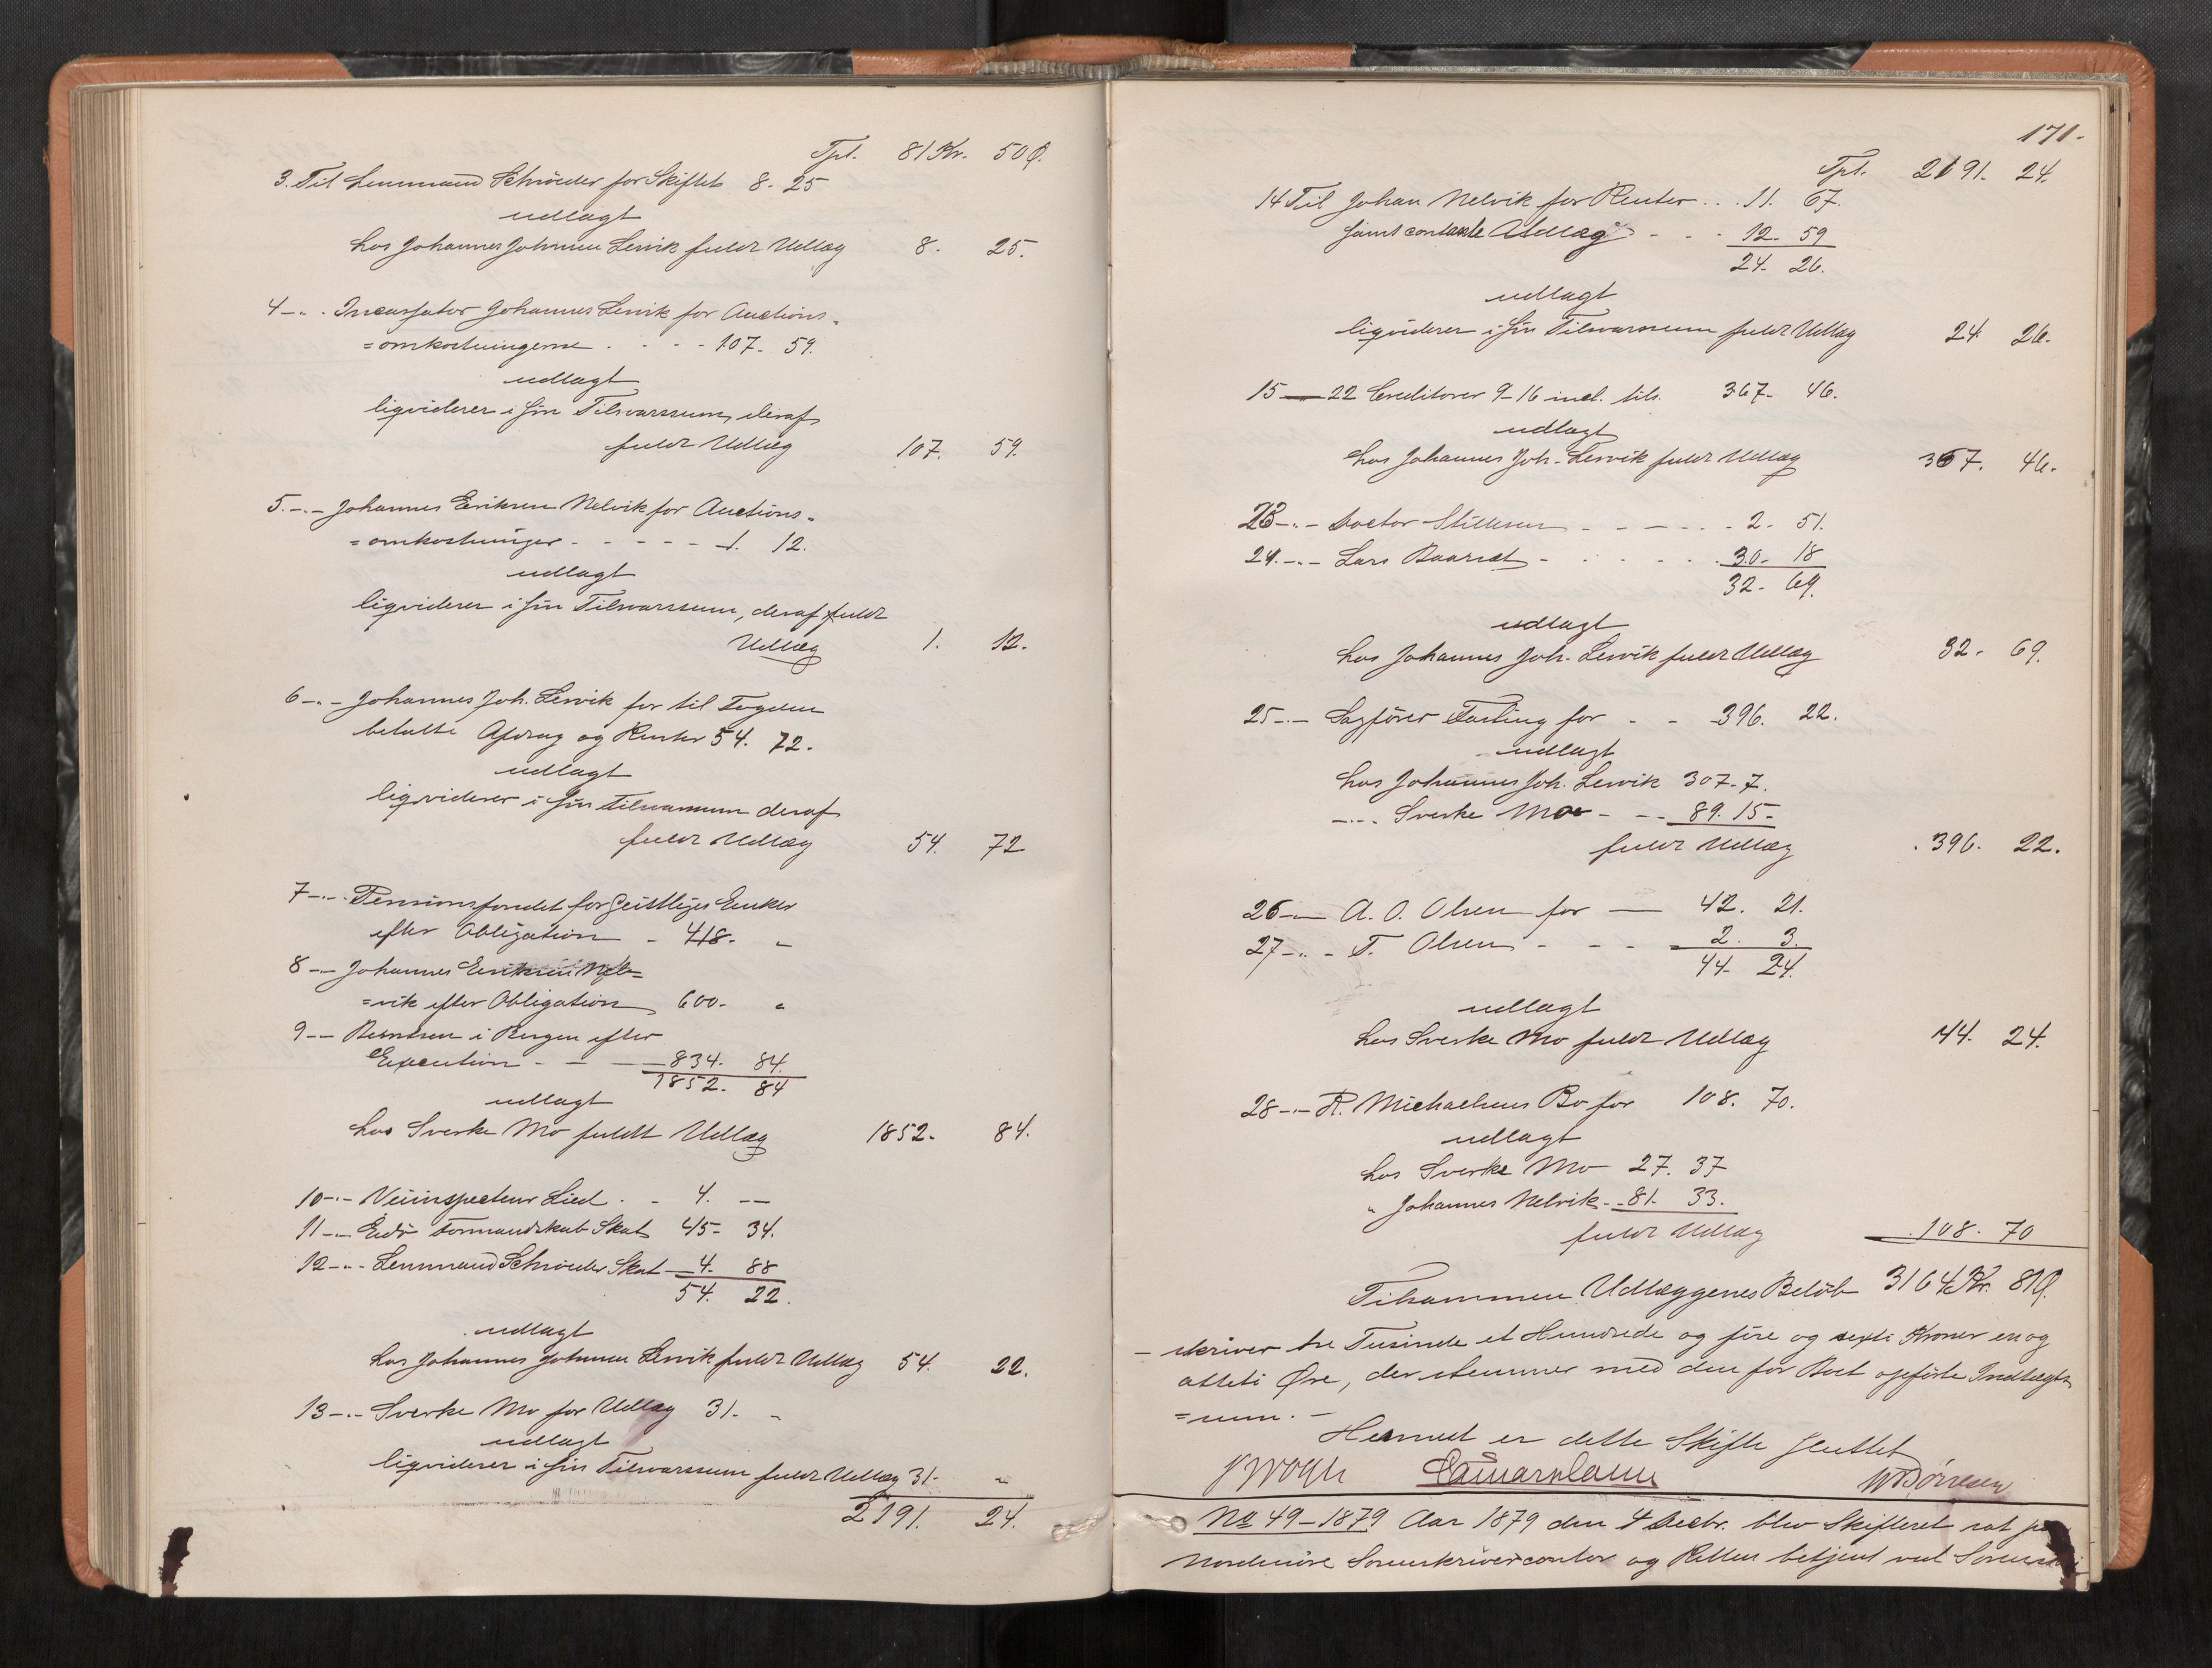 Tpt. 81 Kr. 50 Ø.
3. Til Lensmand Schrøder for Skiftet 8. 25
udlagt
hos Johannes Johnsen Lervik fuldt Udlæg 8. 25.
4 -"- Incassator Johannes Lervik for Auctions-
=omkostningerne . . . . 107. 59.
udlagt
liqviderer i sin Tilsvarssum, deraf
fuldt Udlæg 107. 59.
5 -"- Johannes Eriksen Nelvik for Auctions-
=omkostninger - - - - - 1. 12.
udlagt
liqviderer i sin Tilsvarssum, deraf fuldt
Udlæg 1. 12.
6 -"- Johannes Joh. Lervik for til Fogden
betalte Afdrag og Renter 54. 72.
udlagt
liqviderer i sin Tilsvarssum deraf
fuldt Udlæg 54. 72
7 -"- Pensionsfondet for Geistliges Enker
efter Obligation - 418. "
8 -"- Johannes Eriksen Nel=
=vik efter Obligation 600. "
9 -"- Berntsen i Bergen efter
Execution - - - 834. 84.
1852. 84
udlagt
hos Sverke Mo fuldt Udlæg 1852. 84.
10 -"- Veiinspecteur Lied . - 4. --
11 -"- Edø Formandskab Skat 45- 34.
12 -"- Lensmand Schrøder Skat 4. 88
54. 22.
udlagt
hos Johannes Johnsen Lervik fuldt Udlæg 54. 22.
13 -"- Sverke Mo for Udlæg 31. "
udlagt
liqviderer i sin Tilsvarssum fuldt Udlæg 31. "
2191. 24.
171.
Tpt. 2191. 24.
14 Til Johan Nelvik for Renter . . . 11. 67.
samt contante Udlæg - - - 12. 59
24. 26.
udlagt
liqviderer i sin Tilsvarssum fuldt Udlæg 24. 26.
15 — 22 Creditorer 9-16 incl. tils. 367. 46.
udlagt
hos Johannes Joh. Lervik fuldt Udlæg 367. 46.
23 -"- Doctor - - - - - - 2. 51.
24 -"- Lars - . . . . 30. 18
32. 69.
udlagt
hos Johannes Joh. Lervik fuldt Udlæg 32. 69.
25 -"- Sagfører Fasting for - - 396. 22.
udlagt
hos Johannes Joh. Lervik 307. 7.
-"- Sverke Mo - -- 89. 15-
fuldt Udlæg . 396. 22.
26 -"- A. O. Olsen for — 42. 21.
27 -"- T. Olsen - - - 2. 3.
44. 24.
udlagt
hos Sverke Mo fuldt Udlæg 44. 24.
28 -"- R. Michaelsens Bo for 108. 70.
udlagt
hos Sverke Mo 27. 37
" Johannes Nelvik - 81. 33.
fuldt Udlæg 108. 70
Tilsammen Udlæggenes Beløb 3164 Kr. 81 Ø.
- skriver tre Tusinde et Hundrede og fire og sexti Kroner en og
otteti Øre, der stemmer med den for Boet opførte Indtægts=
=sum. -
Hermed er dette Skifte sluttet
No 49-1879 Aar 1879 den 4 Decbr. blev Skifteret sat paa
Nordmøre Sorenskrivercontor og Retten betjent ved